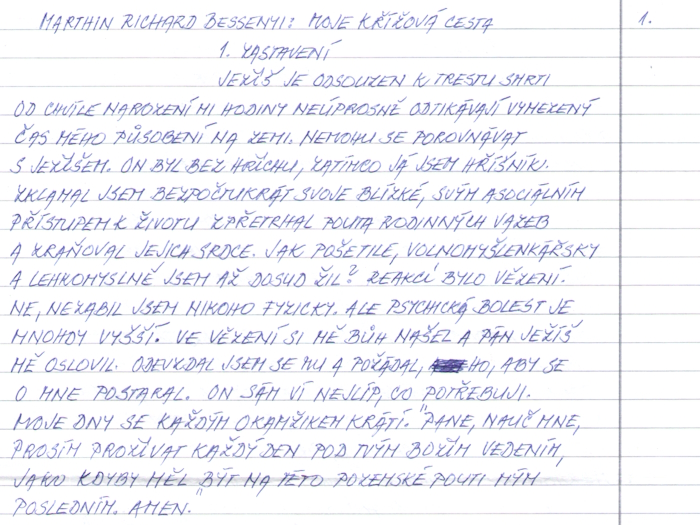 MARTHIN RICHARD BESSENYI: MOJE KŘÍŽOVÁ CESTA 1.
1. ZASTAVENÍ
JEŽÍŠ JE ODSOUZEN K TRESTU SMRTI
OD CHVÍLE NAROZENÍ MI HODINY NEÚPROSNĚ ODTIKÁVAJÍ VYMEZENÝ
ČAS MÉHO PŮSOBENÍ NA ZEMI. NEMOHU SE POROVNÁVAT
S JEŽÍŠEM. ON BYL BEZ HŘÍCHU, ZATÍMCO JÁ JSEM HŘÍŠNÍK.
ZKLAMAL JSEM BEZPOČTUKRÁT SVOJE BLÍZKÉ, SVÝM ASOCIÁLNÍM
PŘÍSTUPEM K ŽIVOTU ZPŘETRHAL POUTA RODINNÝCH VAZEB
A ZRAŇOVAL JEJICH SRDCE. JAK POŠETILE, VOLNOMYŠLENKÁŘSKY
A LEHKOMYSLNĚ JSEM AŽ DOSUD ŽIL? REAKCÍ BYLO VĚZENÍ.
NE, NEZABIL JSEM NIKOHO FYZICKY. ALE PSYCHICKÁ BOLEST JE
MNOHDY VYŠŠÍ. VE VĚZENÍ SI MĚ BŮH NAŠEL A PÁN JEŽÍŠ
MĚ OSLOVIL. ODEVZDAL JSEM SE MU A POŽÁDAL, HO, ABY SE
O MNE POSTARAL. ON SÁM VÍ NEJLÍP, CO POTŘEBUJI.
MOJE DNY SE KAŽDÝM OKAMŽIKEM KRÁTÍ. "PANE, NAUČ MNE,
PROSÍM PROŽÍVAT KAŽDÝ DEN POD TVÝM BOŽÍM VEDENÍM,
JAKO KDYBY MĚL BÝT NA TÉTO POZEMSKÉ POUTI MÝM
POSLEDNÍM. AMEN."